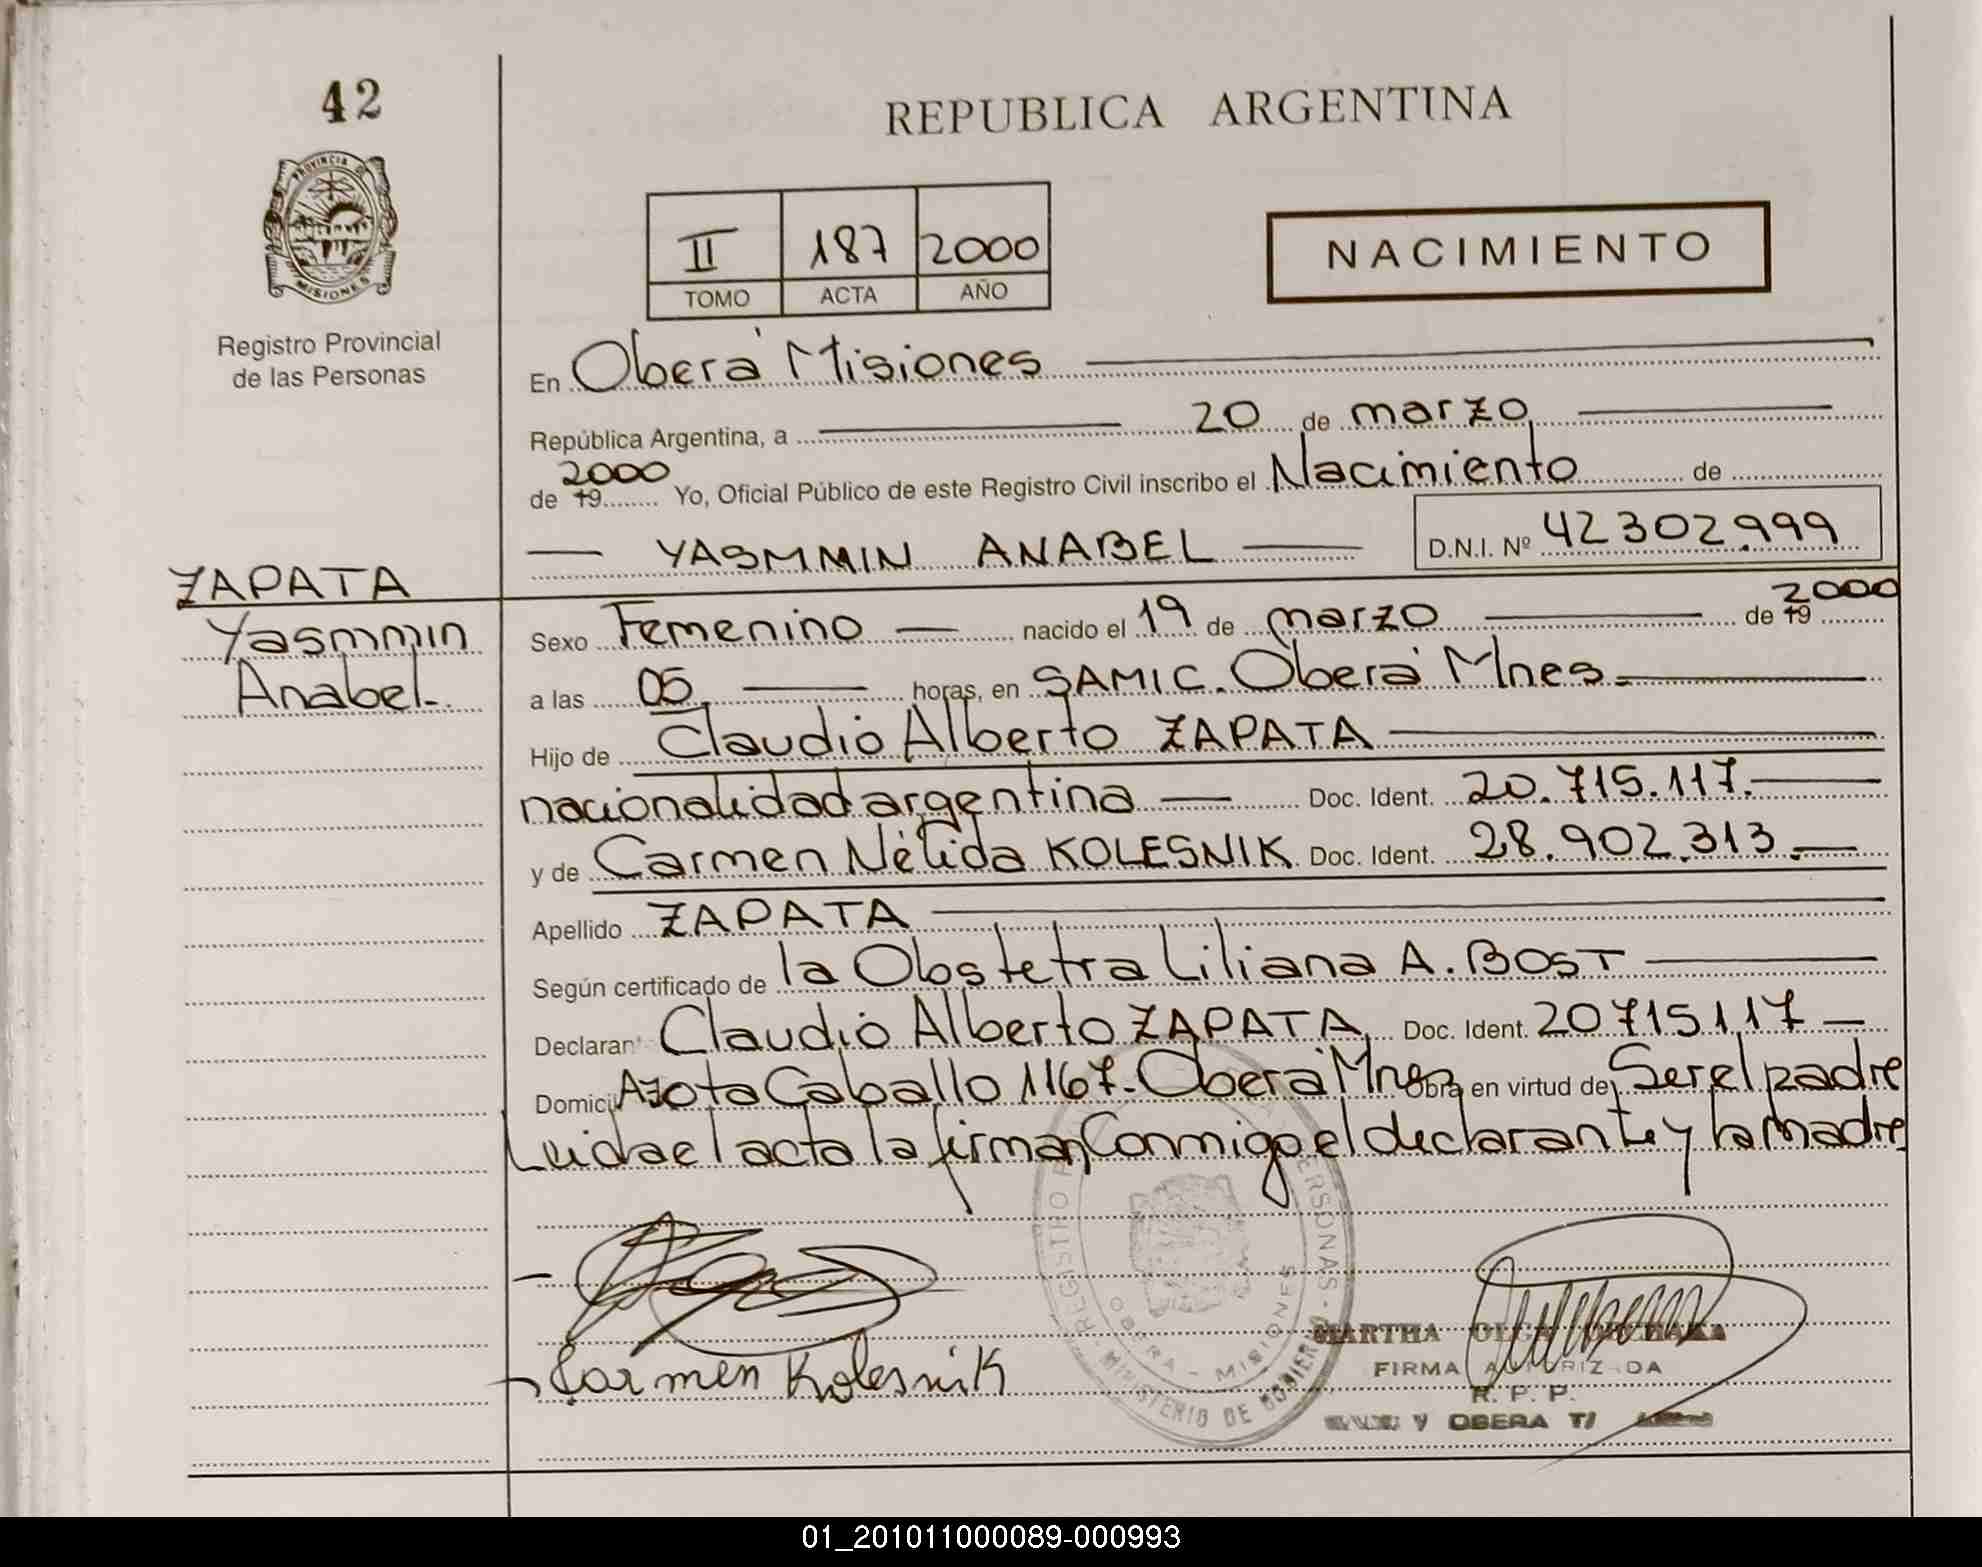 42
REPUBLICA ARGENTINA
PROVINCIA DE
MISIONES
II 187 2000
TOMO ACTA AÑO
NACIMIENTO
Registro Provincial
de las Personas
En Oberá Misiones
República Argentina, a 20 de marzo
de 19 2000 Yo, Oficial Público de este Registro Civil inscribo el Nacimiento de
YASMMIN ANABEL D.N.I. Nº 42302999
ZAPATA
Yasmmin
Anabel.
Sexo Femenino nacido el 19 de marzo de 19 2000
a las 05 horas, en SAMIC. Oberá Mnes.
Hijo de Claudio Alberto ZAPATA
nacionalidad argentina Doc. Ident. 20.715.117.
y de Carmen Nélida KOLESNIK Doc. Ident. 28.902.313.
Apellido ZAPATA
Según certificado de la Obstetra Liliana A. BOST
Declaran Claudio Alberto ZAPATA Doc. Ident. 20715117
Domici Azota Caballo 1167. Oberá Mnes Obra en virtud de Ser el padre
Leida el acta la firman Conmigo el declarante y la madre
REGISTRO PERSONAS
OBERA - MISIONES
MINISTERIO DE GOBIERNO
Carmen Kolesnik
MARTHA OLGA
FIRMA AUTORIZADA
R. P. P.
Y OBERA T/
01_201011000089-000993